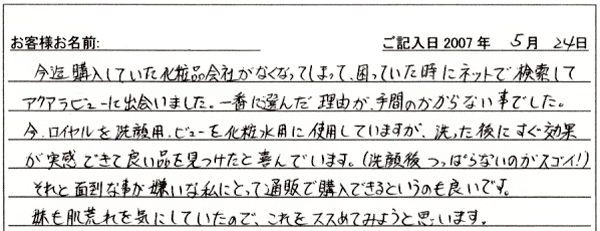 お客様お名前: ご記入日 2007 年 5 月 24 日
今迄購入していた化粧品会社がなくなってしまって、困っていた時にネットで検索して
アクアラビューに出会いました。一番に選んだ理由が、手間のかからない事でした。
今、ロイヤルを洗顔用、ビューを化粧水用に使用していますが、洗った後にすぐ効果
が実感できて良い品を見つけたと喜んでいます。(洗顔後つっぱらないのがスゴイ!)
それと面倒な事が嫌いな私にとって通販で購入できるというのも良いです。
妹も肌荒れを気にしていたので、これをススめてみようと思います。